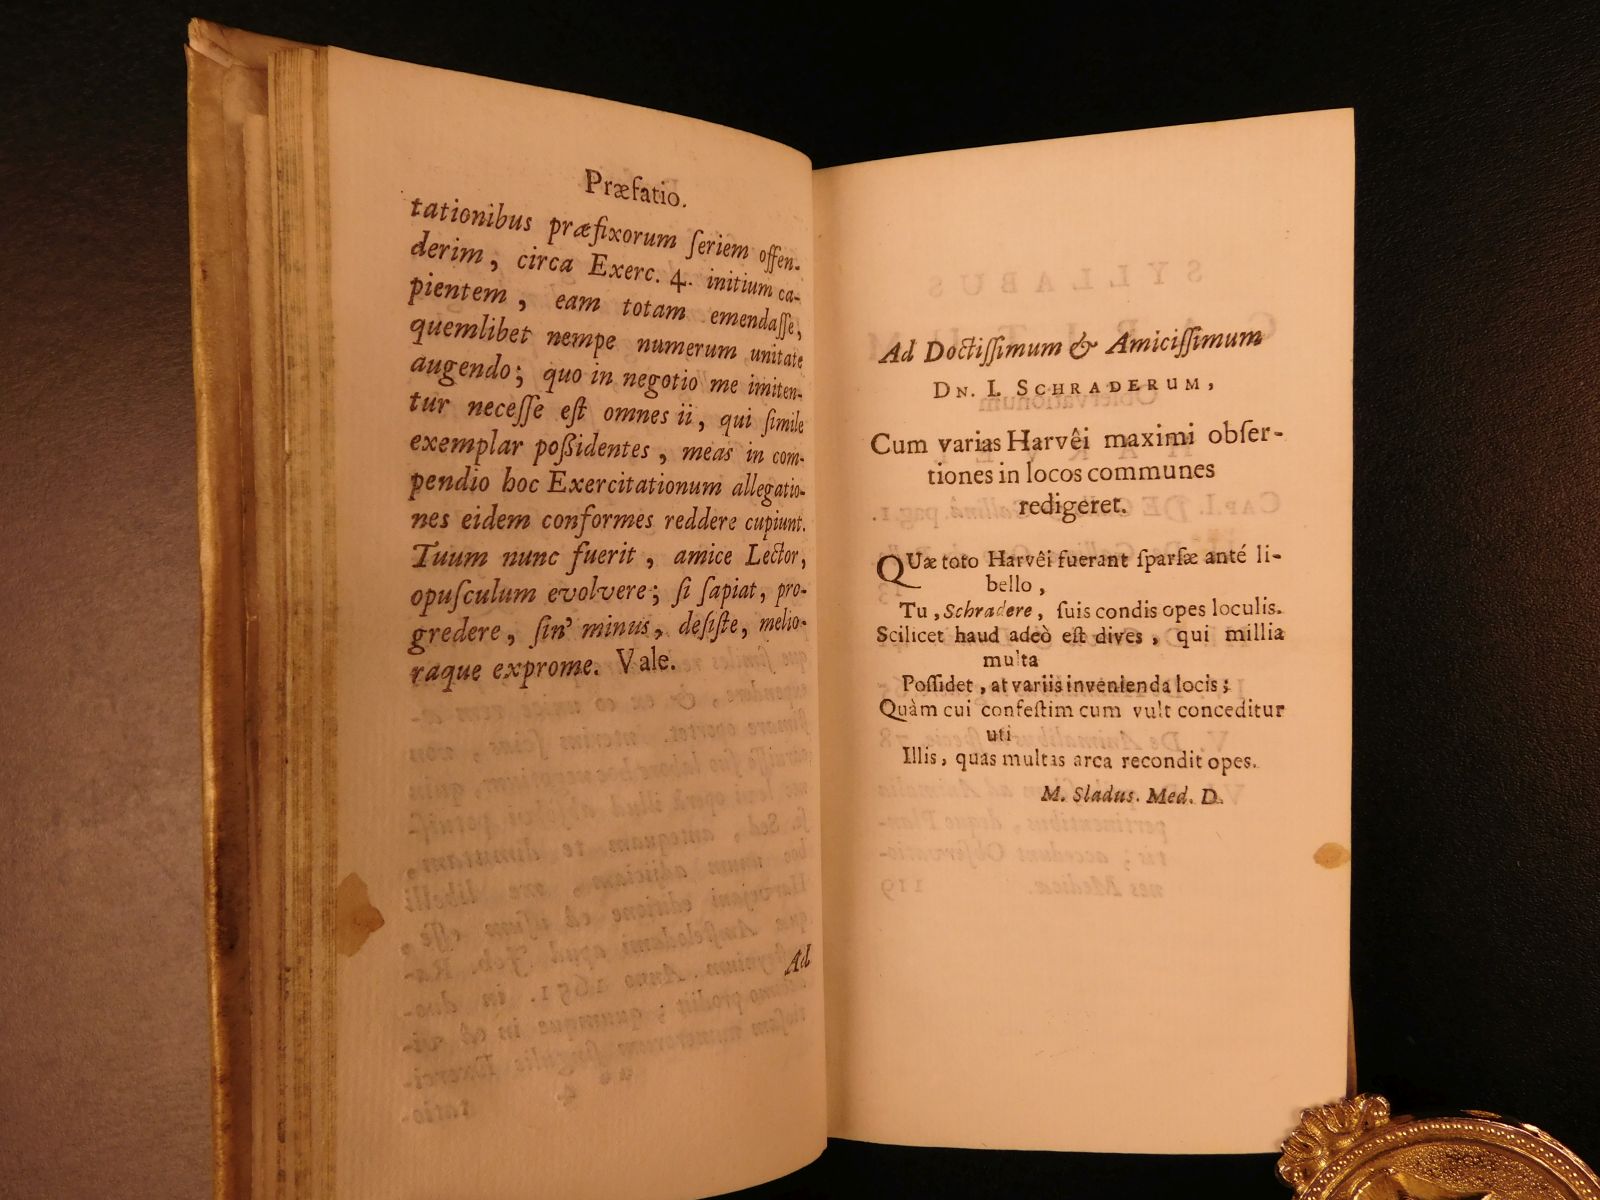 Præfatio.
tationibus præfixorum ſeriem offen-
derim, circa Exerc. 4. initium ca-
pientem, eam totam emendaſſe,
quemlibet nempe numerum unitate
augendo; quo in negotio me imiten-
tur neceſſe eſt omnes ii, qui ſimile
exemplar poßidentes, meas in com-
pendio hoc Exercitationum allegatio-
nes eidem conformes reddere cupiunt.
Tuum nunc fuerit, amice Lector,
opuſculum evolvere; ſi ſapiat, pro-
gredere, ſin' minus, deſiſte, melio-
raque exprome. Vale.
Ad
Ad Doctiſſimum & Amiciſſimum
DN. I. SCHRADERUM,
Cum varias Harvêi maximi obſer-
tiones in locos communes
redigeret.
QUæ toto Harvêi fuerant ſparſæ anté li-
bello,
Tu, Schradere, ſuis condis opes loculis.
Scilicet haud adeò eſt dives, qui millia
multa
Poſſidet, at variis invenienda locis;
Quàm cui confeſtim cum vult conceditur
uti
Illis, quas multas arca recondit opes.
M. Sladus. Med. D.